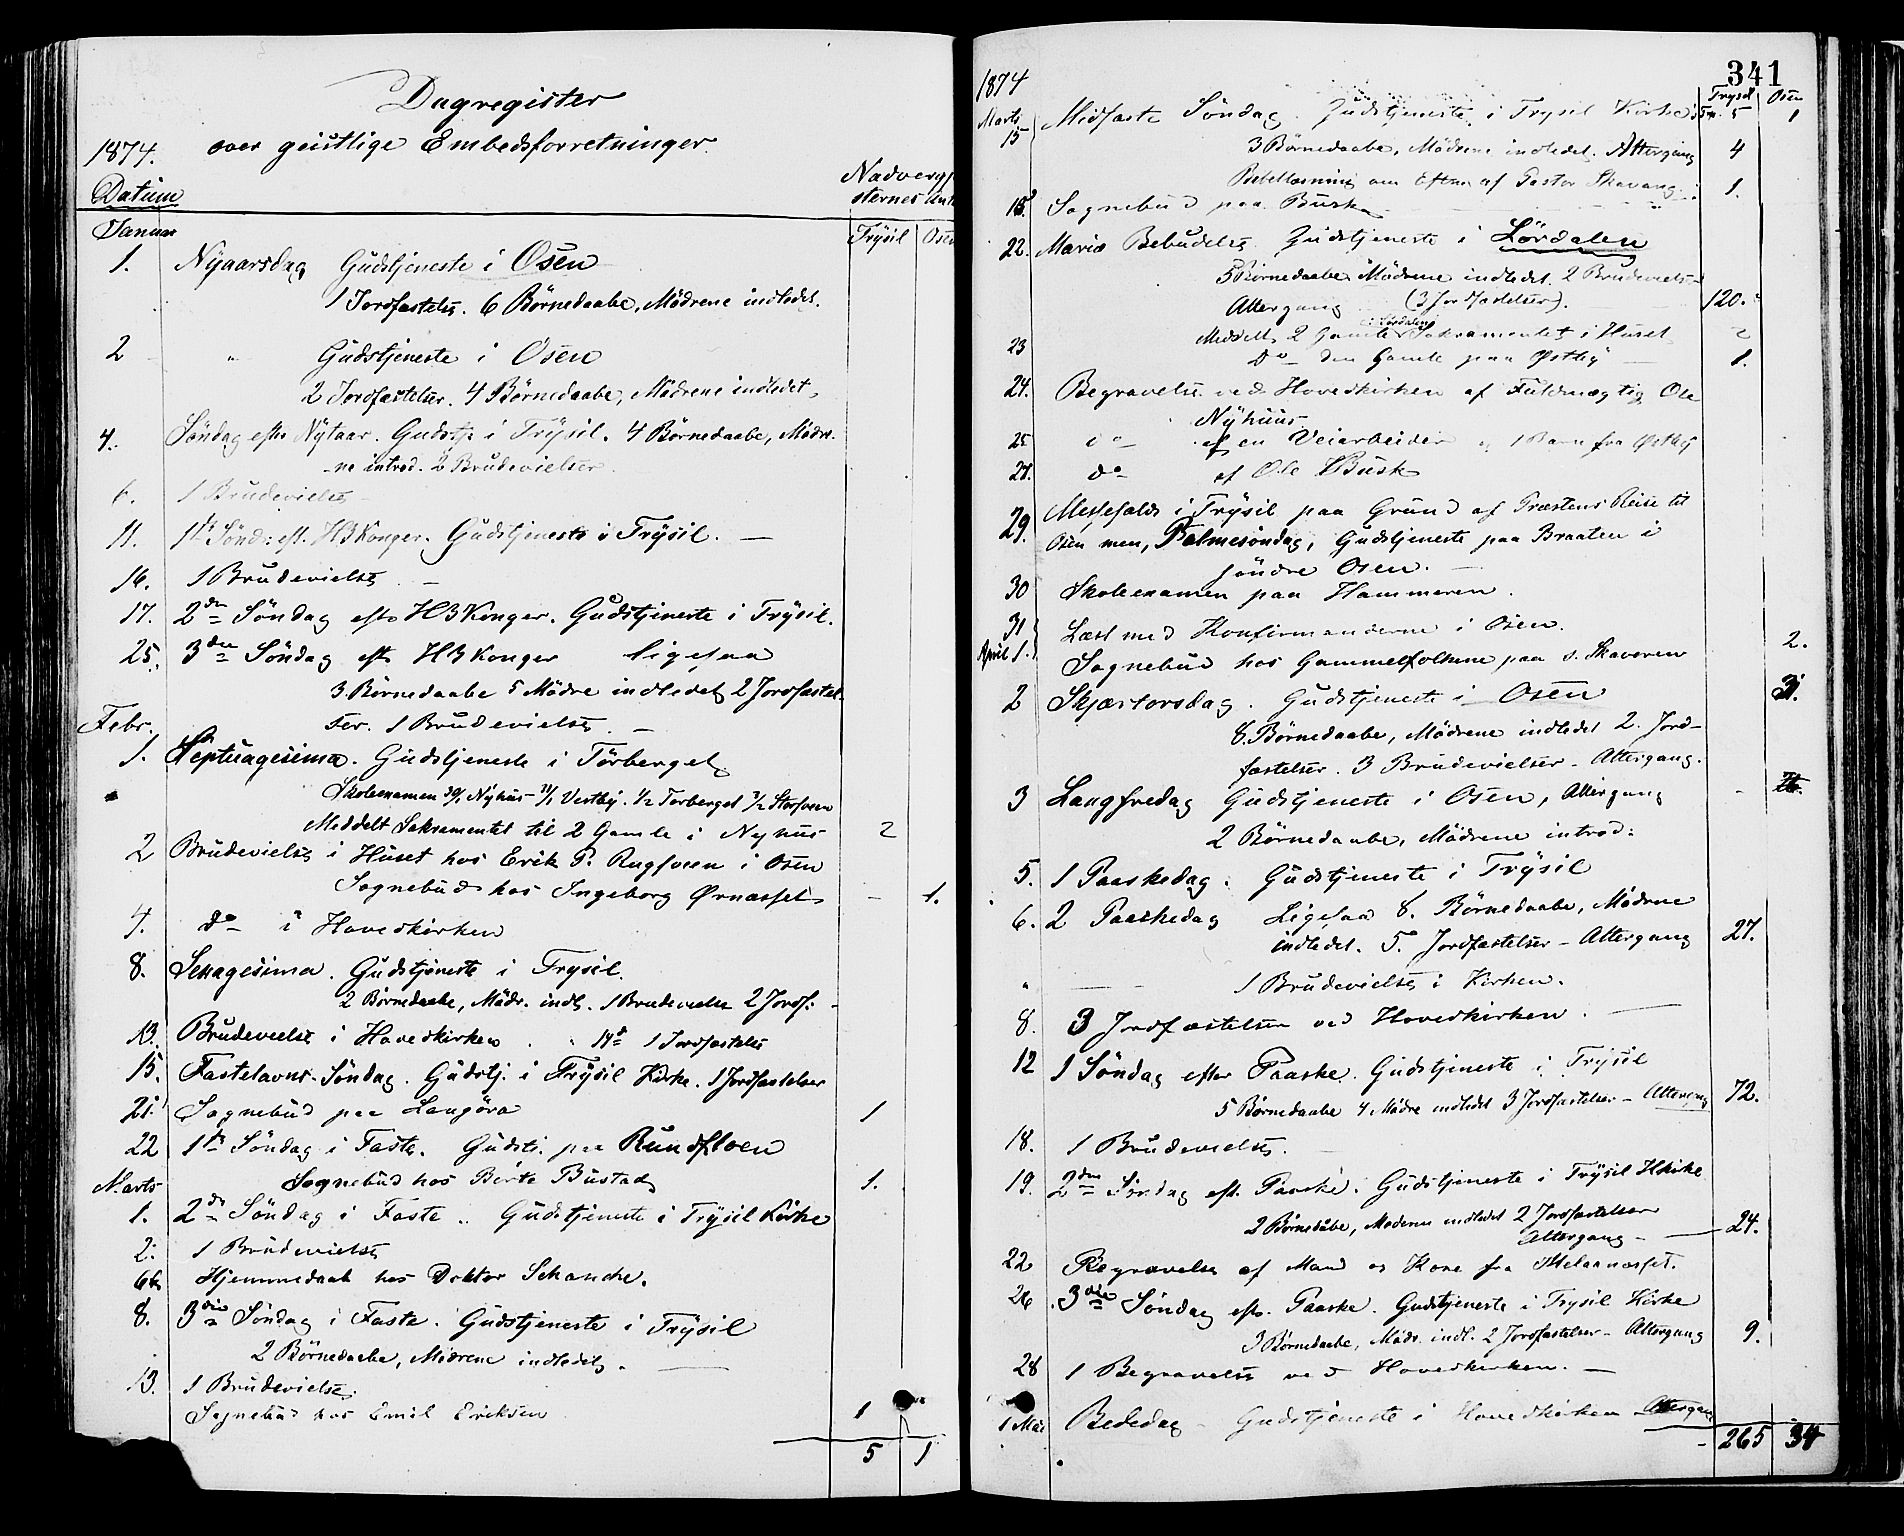 Dagregister
1874. over geistlige Embedsforretninger.
Datum
Nadvergj
sternes Ant
Januar Trysil Osen
1. Nyaarsdag Gudstjeneste i Osen
1 Jordfastelse. 6 Börnedaabe, Mödrene indledet.
2 " Gudstjeneste i Osen
2 Jordfastelser. 4 Börnedaabe, Mödrene indledet
4. Söndag efter Nytaar. Gudstje i Trysil. 4 Börnedaabe, Mödre-
ne introd. 2 Brudevielser.
6. 1 Brudevielse
11. 1ste Sönd: eft. H3Konger. Gudstjeneste i Trysil. —
16. 1 Brudevielse. —
17. 2den Söndag efter H3Konger. Gudstjeneste i Trysil.
25. 3die Söndag eft. H3Konger ligesaa
3 Börnedaabe 5 Mödre indledet 2 Jordfastel-
ser. 1 Brudevielse. —
Febr.
1. Septuagesima. Gudstjeneste i Törberget
Skoleexamen 30/1 Nyhus 31/1 Vestby. 1/2 Torberget 3/2 Storfloen
Meddelt Sakramentet til 2 Gamle i Nyhus 2
2 Brudevielse i Huset hos Erik P. Rugsveen i Osen
Sognebud hos Ingeborg Ørnæsset — 1.
4. do i Hovedkirken
8. Sexagesima. Gudstjeneste i Trysil.
2 Börnedaabe, Mödr. indl. 1 Brudevielse 2 Jordf: -
13. Brudevielse i Hovedkirken. 14de 1 Jordfastelse
15. Fastelavns-Söndag. Gudstj. i Trysil Kirke. 1 Jordfastelser
21. Sognebud paa Langöra 1
22 1ste Söndag i Faste. Gudstj. paa Rundfloen
Marts Sognebud hos Berte Bustad 1.
1. 2den Söndag i Faste „ Gudstjeneste i Trysil Kirke
2. 1 Brudevielse
6te Hjemmedaab hos Doktor Schanche.
8. 3die Söndag i Faste. Gudstjeneste i Trysil
2 Börnedaabe, Mödrene indledet. —
13. 1 Brudevielse.
Sognebud hos Emil Eriksen 1
5 1
341
1874 Trysil Osen
Marts
15 Midfaste Söndag. Gudstjeneste i Trysil Kirke 5 1
3 Börnedaabe, Mödrene indledet. Altergang 4
Bibellæsning om Eftm af Pastor Skavang.
18. Sognebud paa Busk 1.
22. Mariæ Bebudelse. Gudstjeneste i Lördalen
5 Börnedaabe Mödrene indledet. 2 Brudeviels-
Altergang (3 Jordfastelser). 120.
i Lördalen
23 Meddelt 2 Gamle Sakramentet i Huset 2
Do den Gamle paa Østby 1.
24. Begravelse ved Hovedkirken af Fuldmægtig Ole
Nyhuus
25 do af en Veiarbeider og 1 Barn fra Østby
28. do af Ole Busk
29. Messefald i Trysil paa Grund af Præstens Reise til
Osen men, Palmesöndag, Gudstjeneste paa Braaten i
söndre Osen. —
30 Skoleexamen paa Hammeren.
31 Læst med Konfirmanderne i Osen.
April 1. Sognebud hos Gammelfolkene paa s. Skaveren 2.
2 Skjærtorsdag. Gudstjeneste i Osen
8. Börnedaabe, Mödrene indledet 2. Jord-
fastelser. 3 Brudevielser - Altergang.
3 Langfredag Gudstjeneste i Osen, Altergang
2 Börnedaabe, Mödrene introd:
5. 1 Paaskedag. Gudstjeneste i Trysil
6. 2 Paaskedag Ligesaa 8. Börnedaabe, Mödrene
indledet. 5. Jordfastelser - Altergang 27.
" 1 Brudevielse i Kirken.
8. 3 Jordfæstelser ved Hovedkirken. —
12 1 Söndag efter Paaske. Gudstjeneste i Trysil
5 Börnedaabe 4 Mödre indledet 3 Jordfastelser - Altergang 72.
18. 1 Brudevielse. —
19. 2den Söndag eft. Paaske. Gudstjeneste i Trysil Hkirke
2 Börnedaabe, Mödrene indledet 2 Jordfastelser
Altergang - 24.
22 Begravelse af Mand og Kone fra Melaanæsset.
26 3die Söndag eft. Paaske. Gudstjeneste i Trysil Kirke
3 Börnedaabe, Mödr. indl. 2 Jordfastelser - Altergang 9.
28 1 Begravelse ved Hovedkirken. —
1 Mai Bededag - Gudstjeneste i Hovedkirken Altergan
265 34